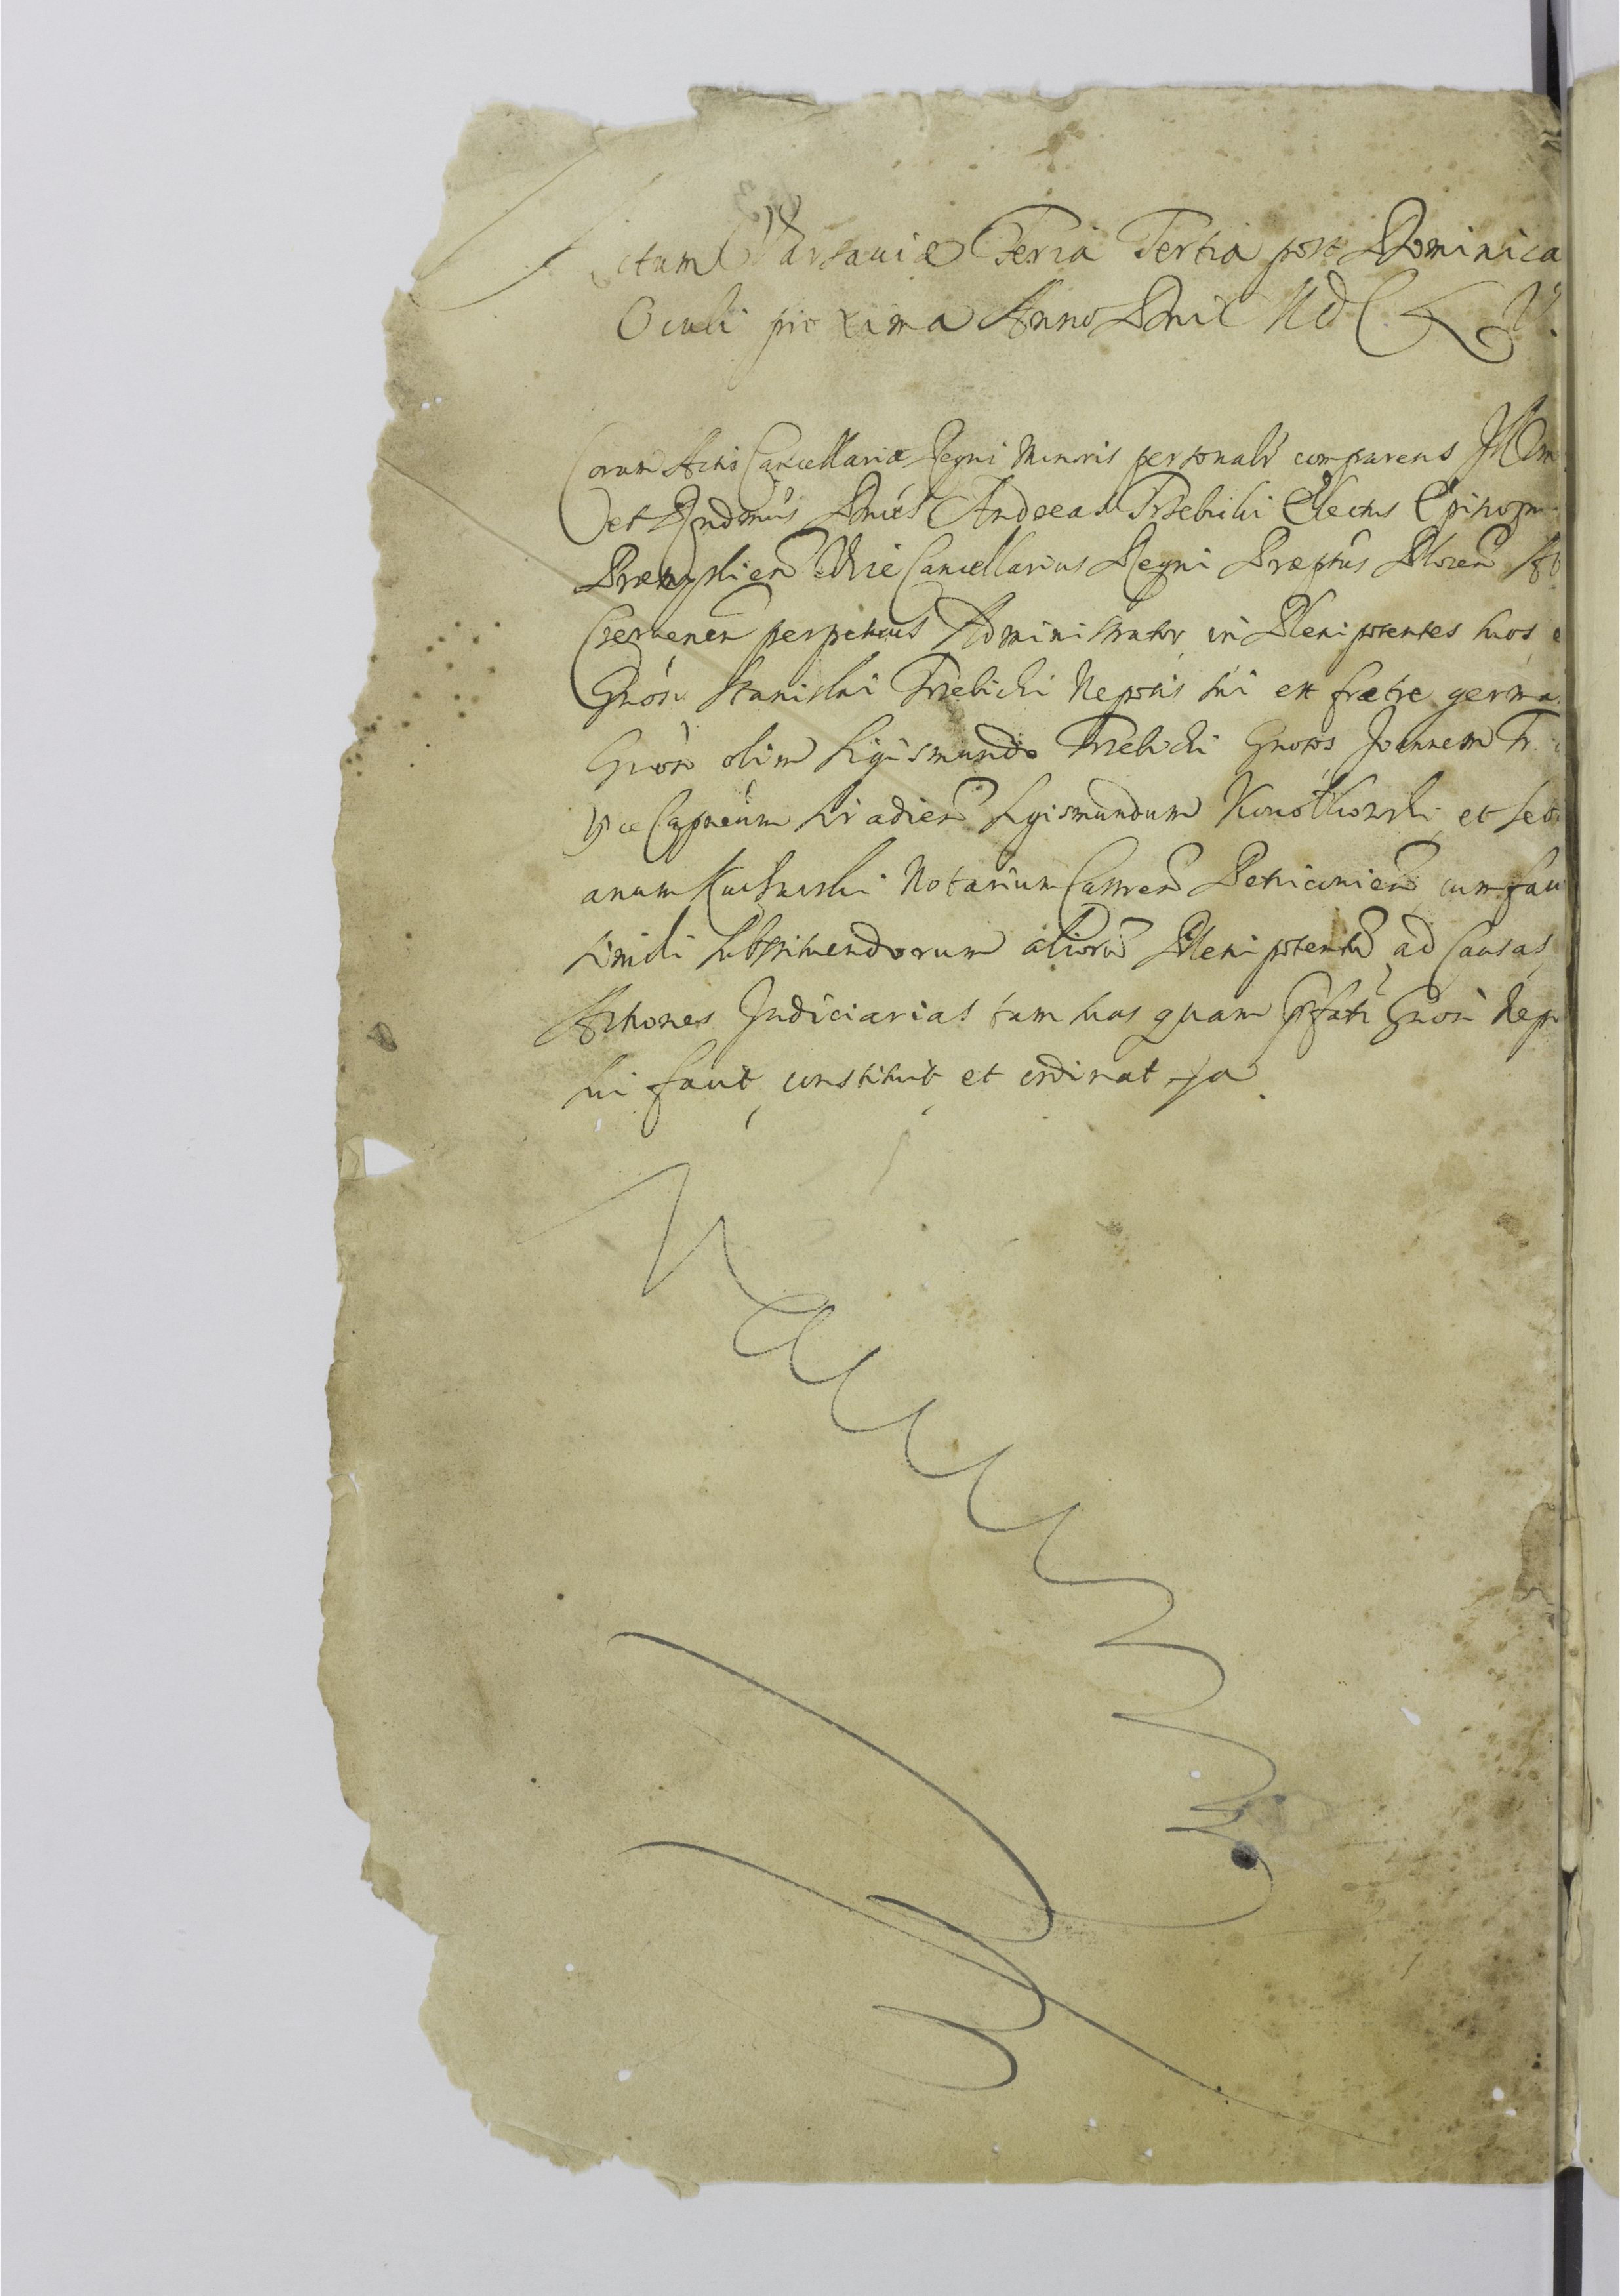 Actum Varsaviæ Feria Tertia post Dominica
Oculi proxima Anno Dni MDC L V.
Coram Actis Cancellariæ Regni Minoris personalr comparens Illm
et Rndmus Dnus Andreas Trzebicki Electus Episcop
Præmyslien Vice Cancellarius Regni Præptus Plocen Ab
Czervenen perpetuus Administrator in Plenipotentes suos, e
Gnosi Stanislai Trzebicki Nepotis sui ex fratre germa
Gnoso olim Sigismundo Trzebicki Gnosos Joannem Tr
Vice Capneum Siradien Sigismundum Konotkowski et Seb
anum Notarium Castren Petricovien cum facu
simili substituendorum aliorū Plenipotentū ad Causas
Actiones Judiciarias tam suas quam pfati Gnosi Nep
sui facit constituit et ordinat